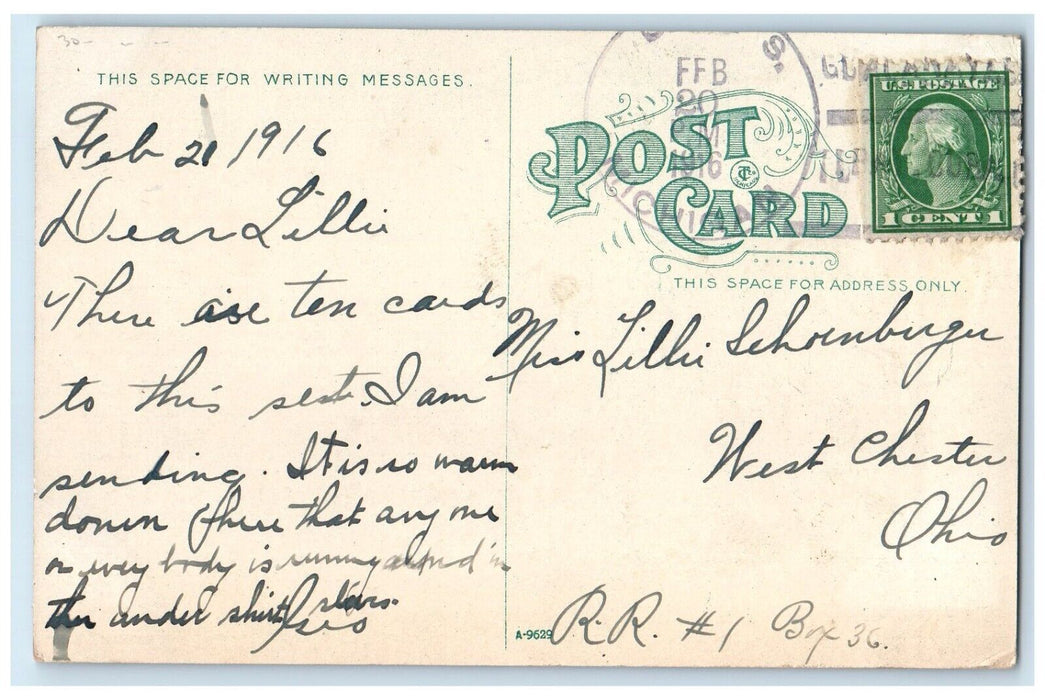 THIS SPACE FOR WRITING MESSAGES.
Feb 20 1916
Dear Lillie
There are ten cards
to this set. I am
sending. It is so warm
down here that any one
or every body is running around in
their under shirt slevs.
Geo
A-9629
U.S.
FEB
20
M
1916
MICHIGAN
POST
CARD
U.S. POSTAGE
1 CENT 1
THIS SPACE FOR ADDRESS ONLY.
Miss Lillie Schoenberger
West Chester
Ohio
R.R. #1 Box 36.